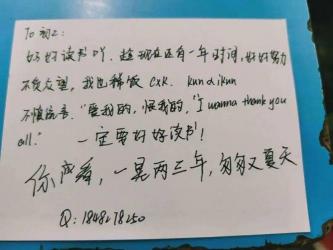 To 初二:
好好读书吖. 趁现在还有一年时间, 好好努力
不负众望, 我也稀饭 CXK. kun di kun
不慎流言. "爱我的, 恨我的, "I wanna thank you
all." 一定要好好读书!
你应看, 一晃两三年, 匆匆又夏天
Q: 1848278250